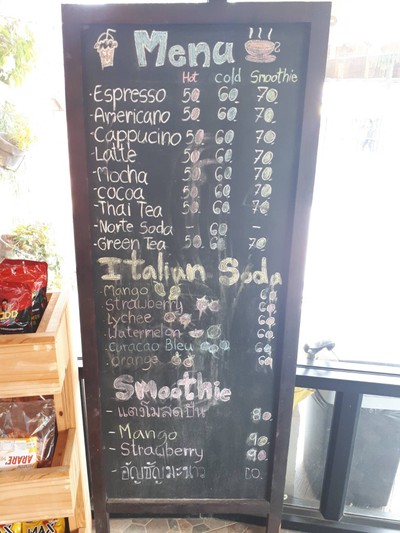 Menu
Hot cold Smoothie
-Espresso 50. 60. 70.
-Americano 50. 60. 70.
-Cappucino 50. 60. 70.
-Latte 50. 60. 70.
-Mocha 50. 60. 70.
-cocoa 50. 60. 70.
-Thai Tea 50. 60. 70.
-Norte Soda - 60. -
-Green Tea 50. 60. 70.
Italian Soda
-Mango 60.
-Strawberry 60.
-Lychee 60.
-Watermelon 60.
-Curacao Bleu 60.
-Orange 60.
Smoothie
-แตงโมสดปั่น 80.
-Mango 90.
-Strawberry 90.
-อัญชัญมะนาว
ARARE
MAX